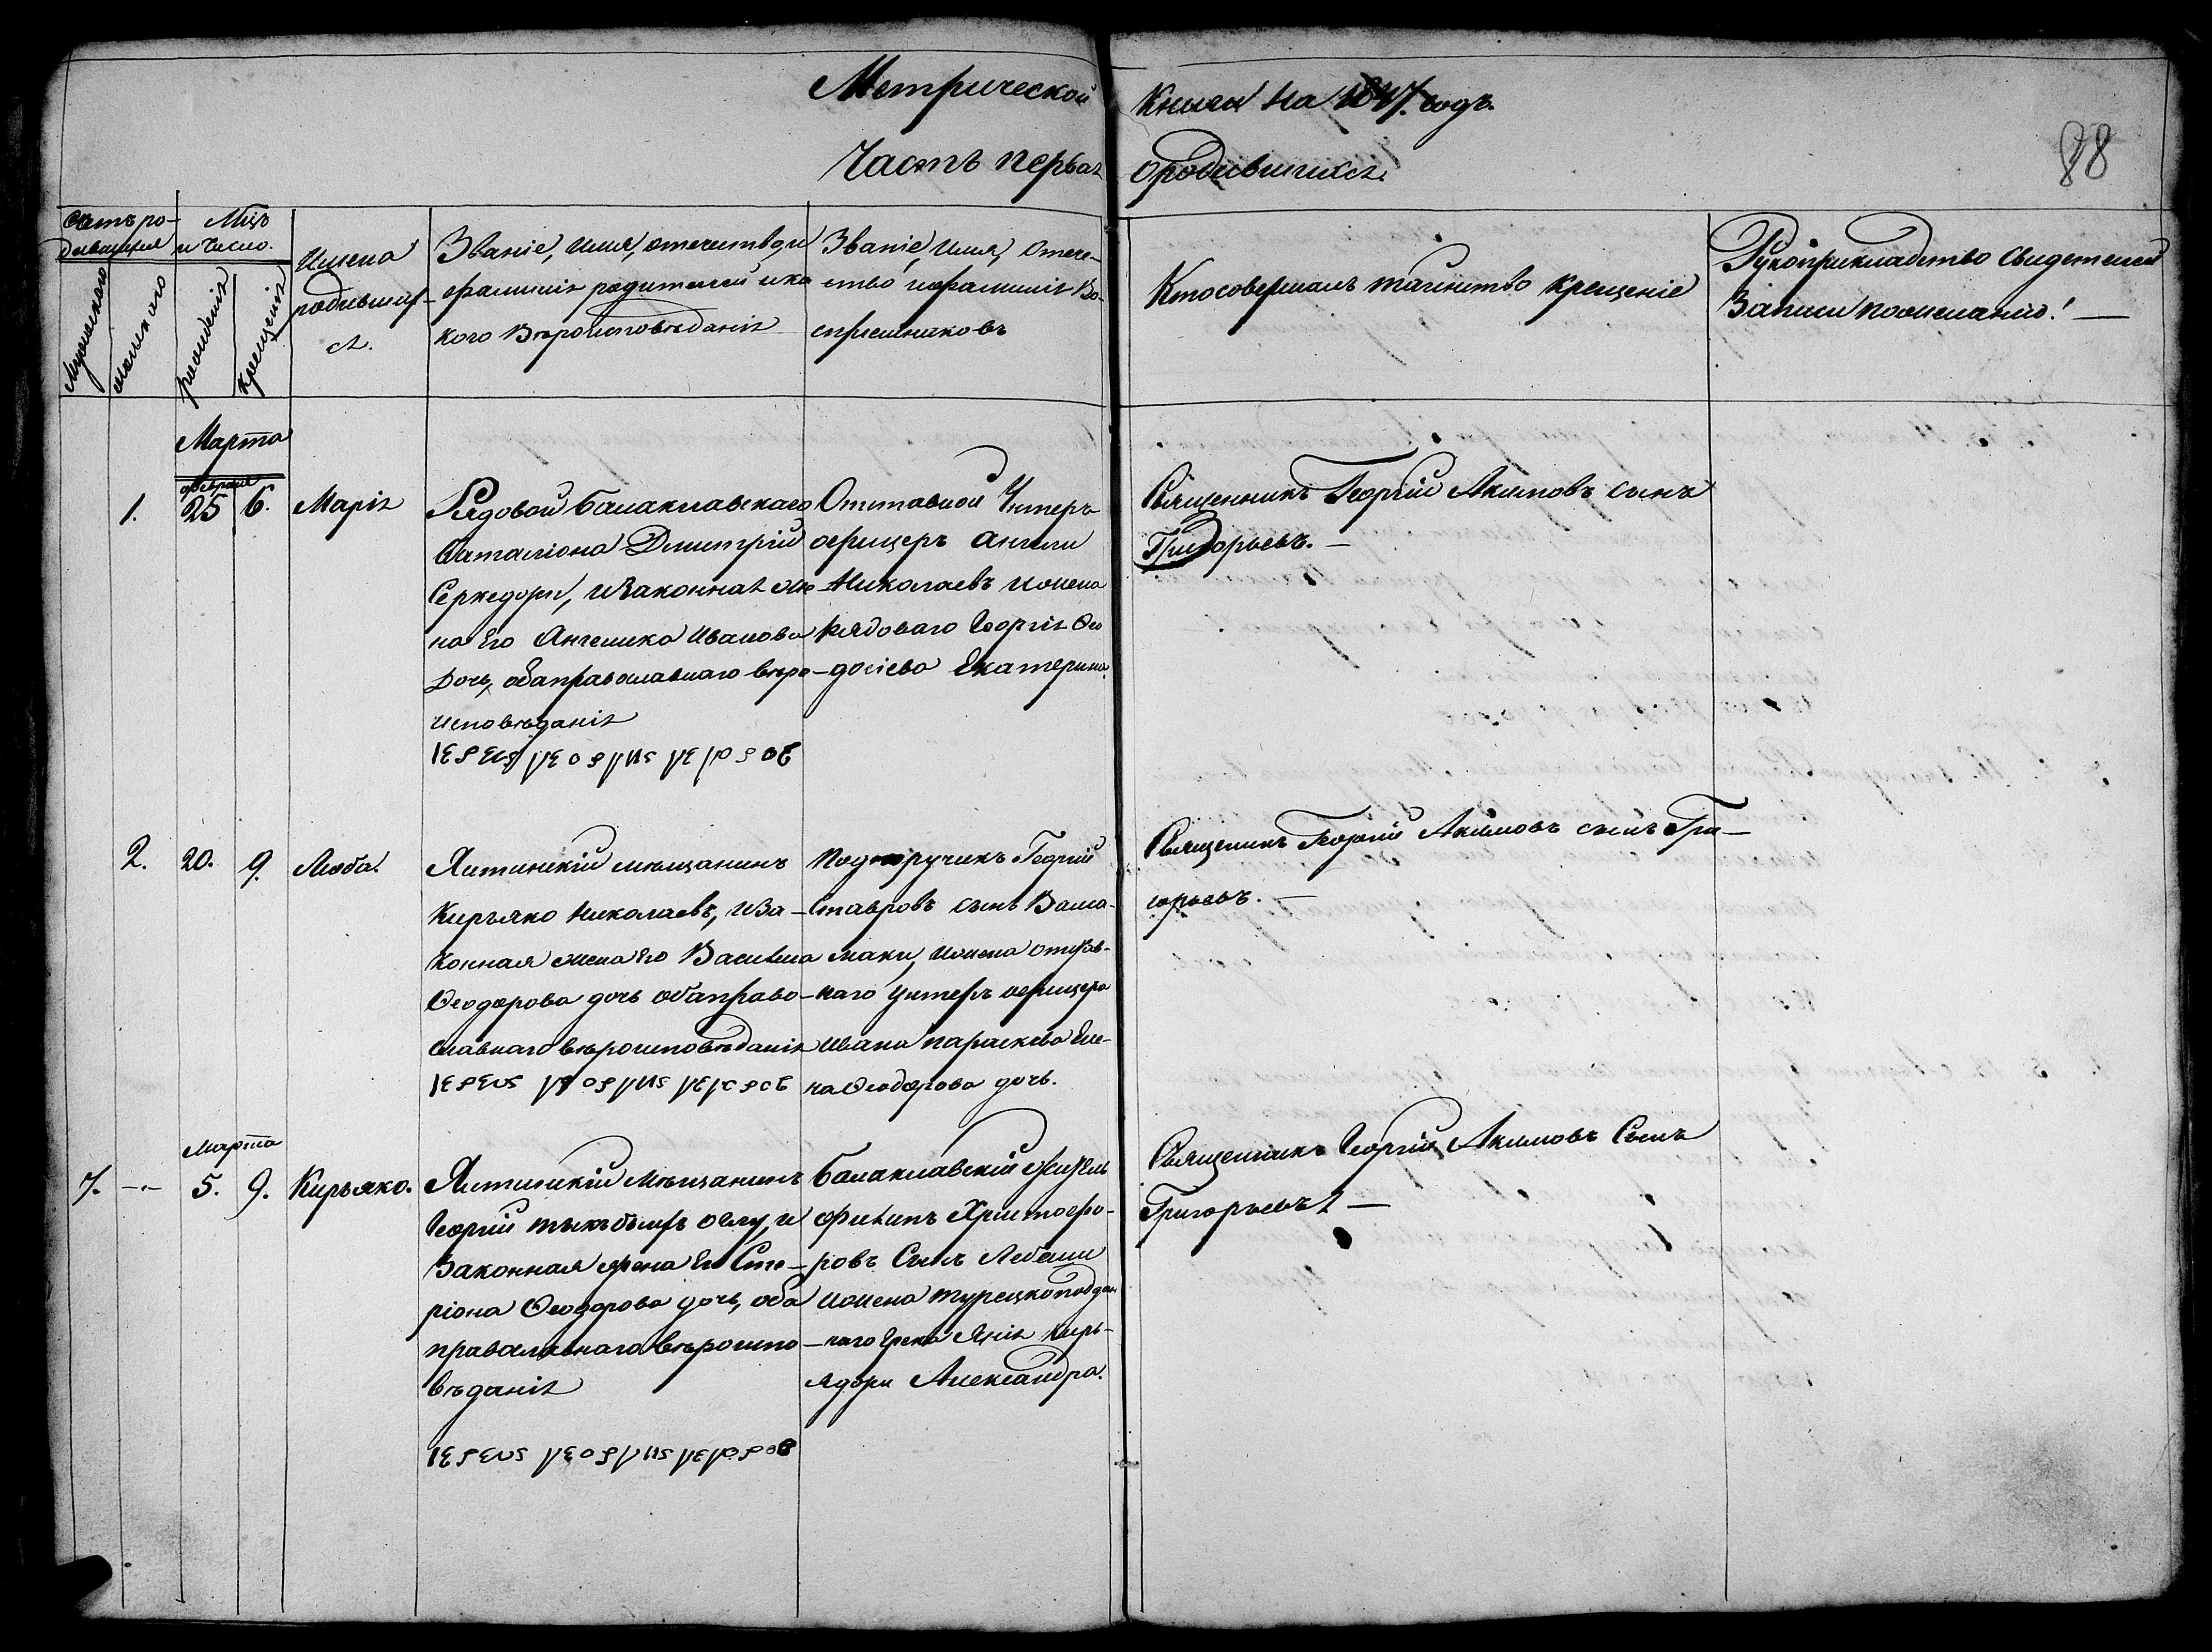 Метрической Книги на 1847. годъ.
Часть первая о родившихся.
88
Счетъ ро-
дившихся
Мѣць
и число.
Мужескаго
женскаго
рожденія
крещенія
Имена
родивших-
ся.
Званіе, имя, отечество, и
фамилія родителей и ка
кого вѣроисповѣданія
Званіе, имя, отече-
ство и фамилія во-
спріемниковъ
Кто совершалъ таинство крещеніе
Рукоприкладство свидетелей
записи по желанію! —
Марта
февраля
1. 25 6. Марія
Рядовой Балаклавскаго
баталіона Дмитрій
и законная же-
на Его Ангелика Иванова
дочь, оба православнаго вѣро-
исповѣданія
ιερευς γεοργης γεγοροβ
Отставной Унтеръ
офицеръ Ангели
Николаевъ и жена
рядоваго Георгія Ѳео
досіева Екатерина.
Священникъ Георгій Акимовъ сынъ
Григорьевъ. —
2. 20. 9. Люба.
Ялтинскій мѣщанинъ
Кирьяко Николаевъ, и за-
конная жена Его Василиса
Ѳеодорова дочь оба право-
славнаго вѣроисповѣданія
ιερευς γεοργης γεγοροβ
Подпоручикъ Георгій
Ставровъ сынъ Вала-
маки, и жена отстав-
наго унтеръ офицера
Ивана Параскева Еле-
на Ѳеодорова дочь.
Священникъ Георгій Акимовъ сынъ Гри-
горьевъ. —
Марта
7. -.- 5. 9. Кирьяко.
Ялтинскій мѣщанинъ
Георгій оглу, и
законная жена Его Сте-
ріона Ѳеодорова дочь, оба
православнаго вѣроиспо-
вѣданія
ιερευς γεοργης γεγοροβ
Балаклавскій житель
Филипъ Христофо-
ровъ Сынъ
и жена турецкоподдан
-наго Грека Янія Кирь-
ядори Александра.
Священникъ Георгій Акимовъ Сынъ
Григорьевъ —